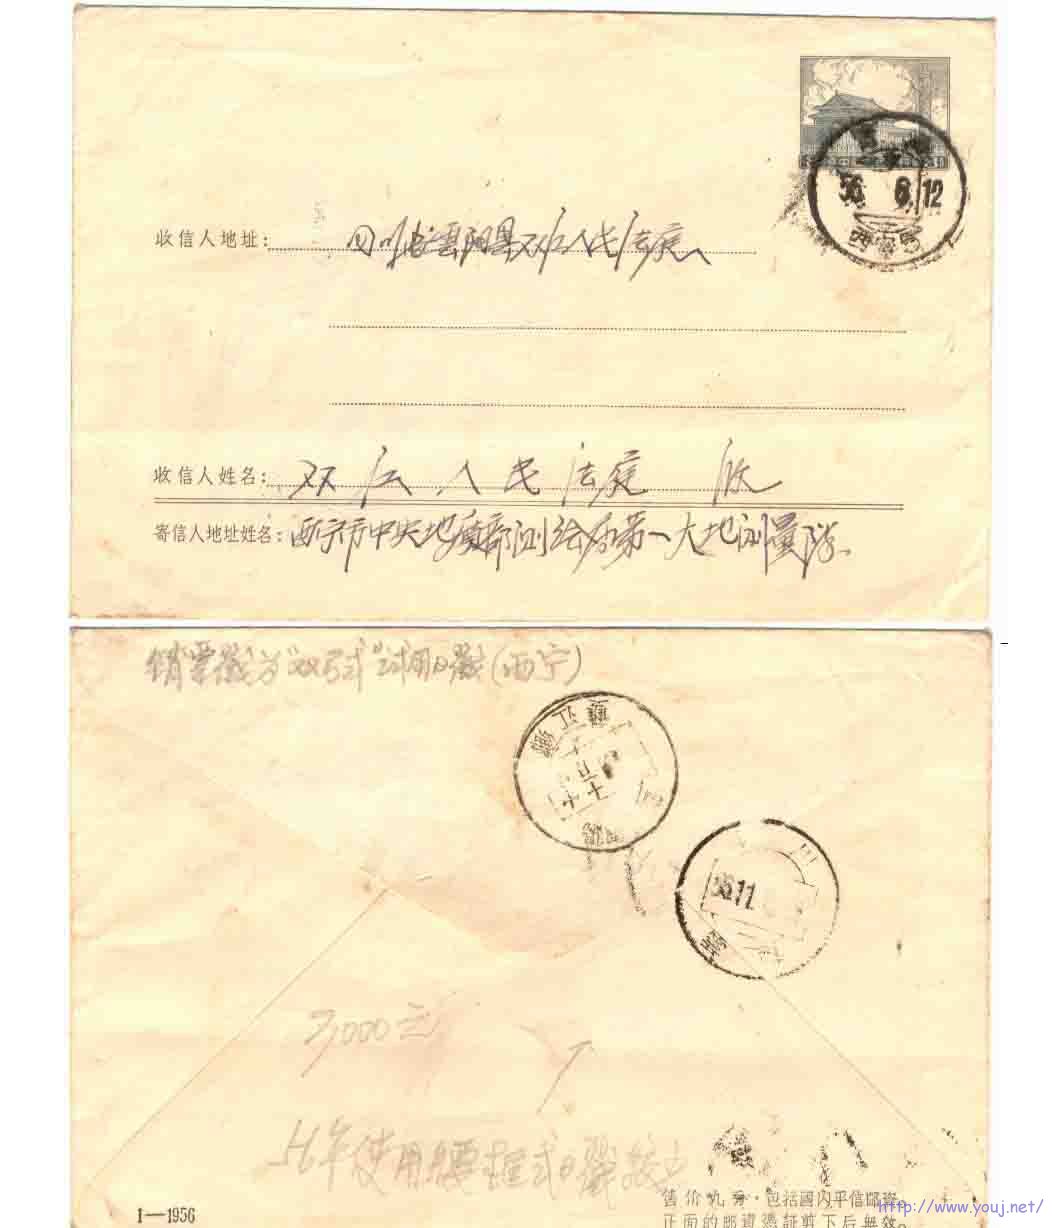 56 6 12
西寧
收信人地址: 四川省雲阳县双江人民法庭
收信人姓名: 双江人民法庭 收
寄信人地址姓名: 西宁市中央地质部测绘局第一大地测量队
销票戳为"双弓式"试用日戳(西宁)
江
56.11
000元
56年使用腰框式日戳较少
售价九分·包括國内平信邮資。
正面的邮資憑証剪下后無效。
1—1956
http://www.youj.net/